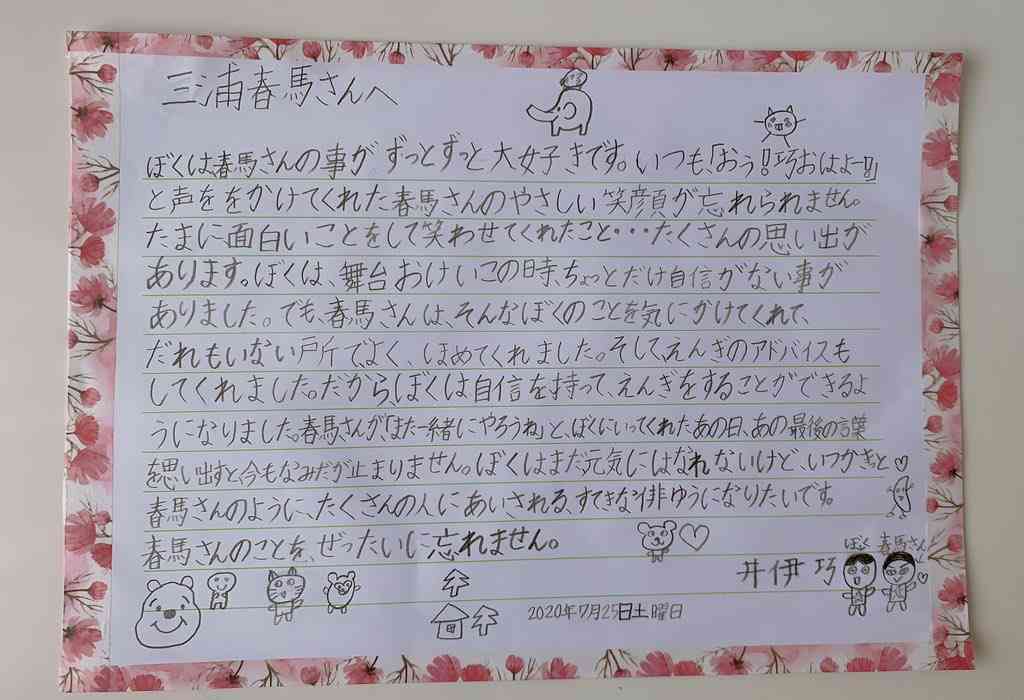 三浦春馬さんへ
ぼくは、春馬さんの事がずっとずっと大好きです。いつも、「おう!!巧おはよー!!」
と声ををかけてくれた春馬さんのやさしい笑顔が忘れられません。
たまに面白いことをして笑わせてくれたこと・・・たくさんの思い出が
あります。ぼくは、舞台おけいこの時、ちょっとだけ自信がない事が
ありました。でも、春馬さんは、そんなぼくのことを気にかけてくれて、
だれもいない戸所でよく、ほめてくれました。そして、えんぎのアドバイスも
してくれました。だから、ぼくは自信を持って、えんぎをすることができるよ
うになりました。春馬さんが、「また一緒にやろうね」と、ぼくにいってくれたあの日、あの最後の言葉
を思い出すと、今もなみだが止まりません。ぼくはまだ元気にはなれないけど、いつかきっと
春馬さんのように、たくさんの人にあいされる、すてきな俳ゆうになりたいです。
春馬さんのことを、ぜったいに忘れません。
ぼく 春馬さん
井伊巧
2020年7月25日土曜日